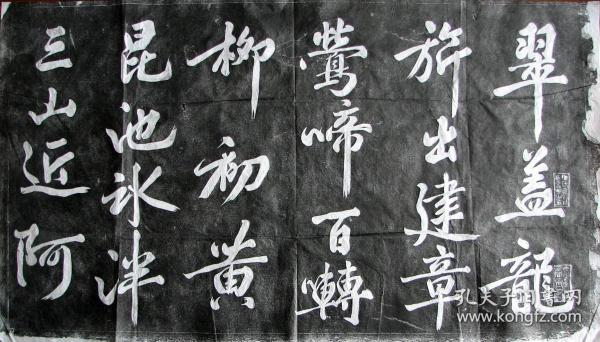 翠盖龍
旂出建章
鶯啼百囀
柳初黄
昆池氷泮
三山近阿
孔夫子旧书网
www.kongfz.com